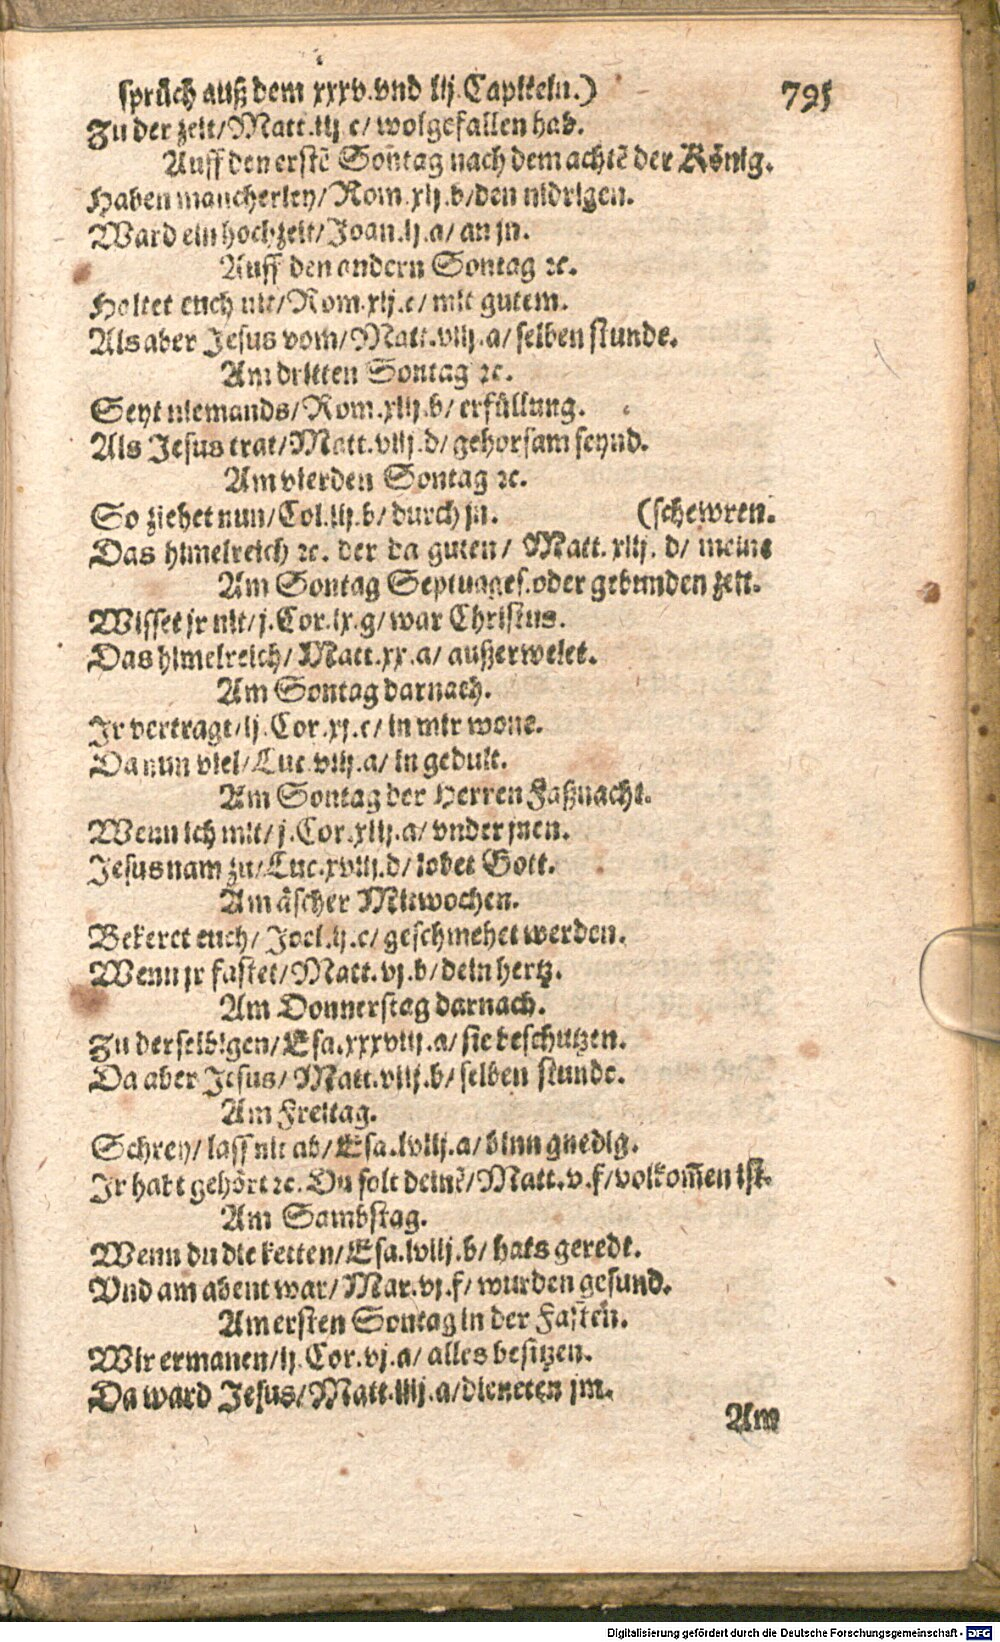 sprüch auß dem xxxv. vnd lij. Capiteln.) 795
Zu der zeit/ Matt. iij c/ wolgefallen hab.
Auff den erstē Sontag nach dem achtē der König.
Haben mancherley/ Rom. xij. b/ den nidrigen.
Ward ein hochzeit/ Joan. ij. a/ an jn.
Auff den andern Sontag ꝛc.
Haltet euch nit/ Rom. xij. c/ mit gutem.
Als aber Jesus vom/ Matt. viij. a/ selben stunde.
Am dritten Sontag ꝛc.
Seyt niemands/ Rom. xiij. b/ erfüllung.
Als Jesus trat/ Matt. viij. d/ gehorsam seynd.
Am vierden Sontag ꝛc.
So ziehet nun/ Col. iij. b/ durch jn. (schewren.
Das himelreich ꝛc. der da guten/ Matt. xiij. d/ meine
Am Sontag Septuages. oder gebunden zeit.
Wisset jr nit/ j. Cor. ix. g/ war Christus.
Das himelreich/ Matt. xx. a/ außerwelet.
Am Sontag darnach.
Jr vertragt/ ij. Cor. xj. c/ in mir wone.
Da nun viel/ Luc. viij. a/ in gedult.
Am Sontag der Herren Faßnacht.
Wenn ich mit/ j. Cor. xiij. a/ vnder jnen.
Jesus nam zu/ Luc. xviij. d/ lobet Gott.
Am äscher Mitwochen.
Bekeret euch/ Joel. ij. c/ geschmehet werden.
Wenn jr fastet/ Matt. vj. b/ dein hertz.
Am Donnerstag darnach.
Zu derselbigen/ Esa. xxxviij. a/ sie beschutzen.
Da aber Jesus/ Matt. viij. b/ selben stunde.
Am Freitag.
Schrey/ lass nit ab/ Esa. lviij. a/ binn gnedig.
Jr habt gehört ꝛc. Du solt deinē/ Matt. v. f/ volkom̄en ist.
Am Sambstag.
Wenn du die ketten/ Esa. lviij. b/ hats geredt.
Vnd am abent war/ Mar. vj. f/ wurden gesund.
Am ersten Sontag in der Fasten.
Wir ermanen/ ij. Cor. vj. a/ alles besitzen.
Da ward Jesus/ Matt. iiij. a/ dieneten jm.
Am
Digitalisierung gefördert durch die Deutsche Forschungsgemeinschaft - DFG